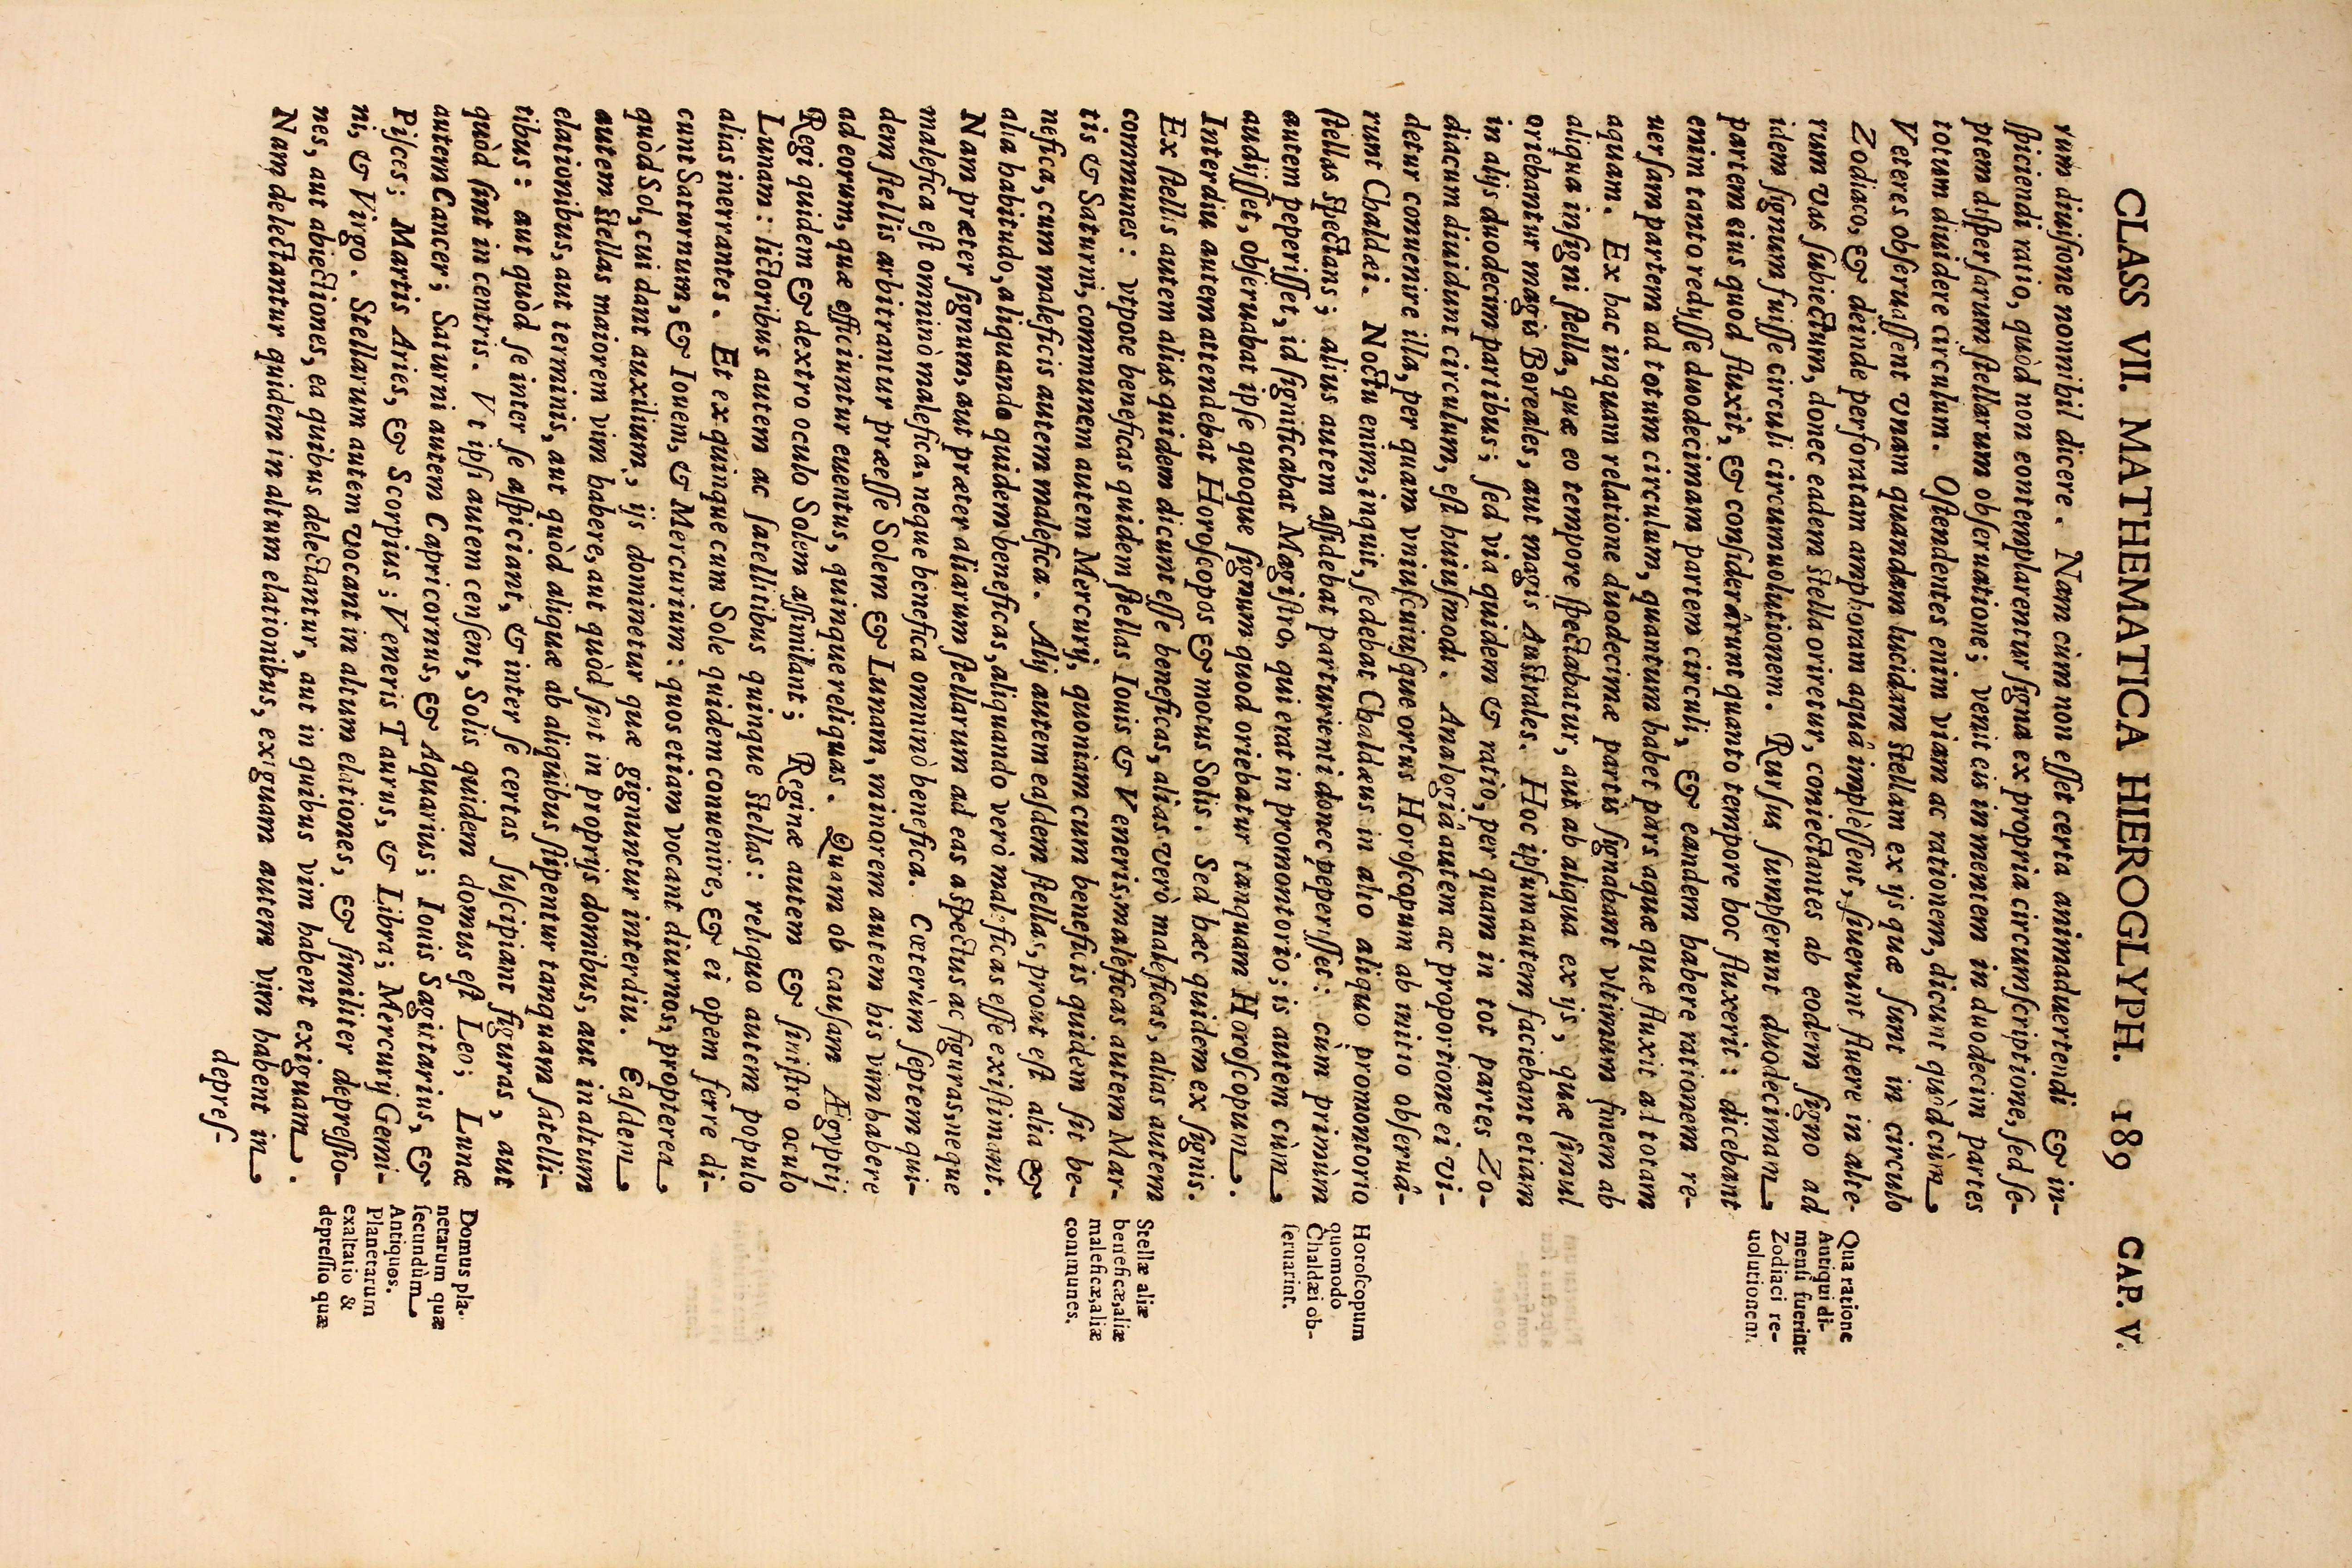 CLASS VII. MATHEMATICA HIEROGLYPH. 189 CAP. V.
rum diuiſione nonnihil dicere. Nam cùm non eſſet certa animaduertendi & in-
ſpiciendi ratio, quòd non eontemplarentur ſigna ex propria circumſcriptione, ſed ſe-
ptem diſperſarum ſtellarum obſeruatione; venit eis in mentem in duodecim partes
totum diuidere circulum. Oſtendentes enim viam ac rationem, dicunt quòd cùm
Veteres obſeruaſſent vnam quandam lucidam ſtellam ex ijs quæ ſunt in circulo
Zodiaco, & deinde perforatam amphoram aquâ impleſſent, ſiuerunt fluere in alte-
rum vas ſubiectum, donec eadem ſtella oriretur, coniectantes ab eodem ſigno ad
idem ſignum fuiſſe circuli circumuolutionem. Rurſus ſumpſerunt duodecimam
partem eius quod fluxit, & conſiderârunt quanto tempore hoc fluxerit: dicebant
enim tanto redyſſe duodecimam partem circuli, & eandem habere rationem re-
uerſam partem ad totum circulum, quantum habet pars aquæ quæ fluxit ad totam
aquam. Ex hac inquam relatione duodecimæ partis ſignabant vltimum finem ab
aliqua inſigni ſtella, quæ eo tempore ſpectabatur, aut ab aliqua ex ijs, quæ ſimul
oriebantur magis Boreales, aut magis Auſtrales. Hoc ipſum autem faciebant etiam
in alijs duodecim partibus; ſed via quidem & ratio, per quam in tot partes Zo-
diacum diuidunt circulum, eſt huiuſmodi. Analogiâ autem ac proportione ei vi-
detur conuenire illa, per quam vniuſcuiuſque ortus Horoſcopum ab initio obſeruâ-
runt Chaldæi. Noctu enim, inquit, ſedebat Chaldæus in alto aliquo promontorio
ſtellas ſpectans; alius autem aſſidebat parturienti donec peperiſſet: cùm primùm
autem peperiſſet, id ſignificabat Magiſtro, qui erat in promontorio; is autem cùm
audijſſet, obſeruabat ipſe quoque ſignum quod oriebatur tanquam Horoſcopum.
Interdiu autem attendebat Horoſcopos & motus Solis. Sed hæc quidem ex ſignis.
Ex ſtellis autem alias quidem dicunt eſſe beneficas, alias verò maleficas, alias autem
communes: vtpote beneficas quidem ſtellas Iouis & Veneris, maleficas autem Mar-
tis & Saturni, communem autem Mercurij, quoniam cum beneficis quidem ſit be-
nefica, cum maleficis autem malefica. Alij autem eaſdem ſtellas, prout eſt alia &
alia habitudo, aliquando quidem beneficas, aliquando verò maleficas eſſe exiſtimant.
Nam præter ſignum, aut præter aliarum ſtellarum ad eas aſpectus ac figuras neque
malefica eſt omninò malefica, neque benefica omninò benefica. Cæterùm ſeptem qui-
dem ſtellis arbitrantur præeſſe Solem & Lunam, minorem autem his vim habere
ad eorum, quæ efficiuntur euentus, quinque reliquas. Quam ob cauſam Ægyptij
Regi quidem & dextro oculo Solem aſſimilant; Reginæ autem & ſiniſtro oculo
Lunam: lictoribus autem ac ſatellitibus quinque ſtellas: reliquo autem populo
alias inerrantes. Et ex quinque cum Sole quidem conuenire, & ei opem ferre di-
cunt Saturnum, & Iouem, & Mercurium: quos etiam vocant diurnos, propterea
quòd Sol, cui dant auxilium, ijs dominetur quæ gignuntur interdiu. Eaſdem
autem ſtellas maiorem vim habere, aut quòd ſint in proprijs domibus, aut in altum
elationibus, aut terminis, aut quòd aliquæ ab aliquibus ſtipentur tanquam ſatelli-
tibus: aut quòd ſe inter ſe aſpiciant, & inter ſe certas ſuſcipiant figuras, aut
quòd ſint in centris. Vt ipſi autem cenſent, Solis quidem domus eſt Leo; Lunæ
autem Cancer; Saturni autem Capricornus, & Aquarius; Iouis Sagitarius, &
Piſces; Martis Aries, & Scorpius; Veneris Taurus, & Libra; Mercurij Gemi-
ni, & Virgo. Stellarum autem vocant in altum elationes, & ſimiliter depreſſio-
nes, aut abiectiones, ea quibus delectantur, aut in quibus vim habent exiguam.
Nam delectantur quidem in altum elationibus, exiguam autem vim habent in
depreſ-
Qua ratione
Antiqui di-
menſi fuerint
Zodiaci re-
uolutionem.
Horoſcopum
quomodo
Chaldæi ob-
ſeruarint.
Stellæ aliæ
beneficæ, aliæ
maleficæ, aliæ
communes.
Domus pla-
netarum quæ
ſecundùm
Antiquos.
Planetarum
exaltatio &
depreſſio quæ